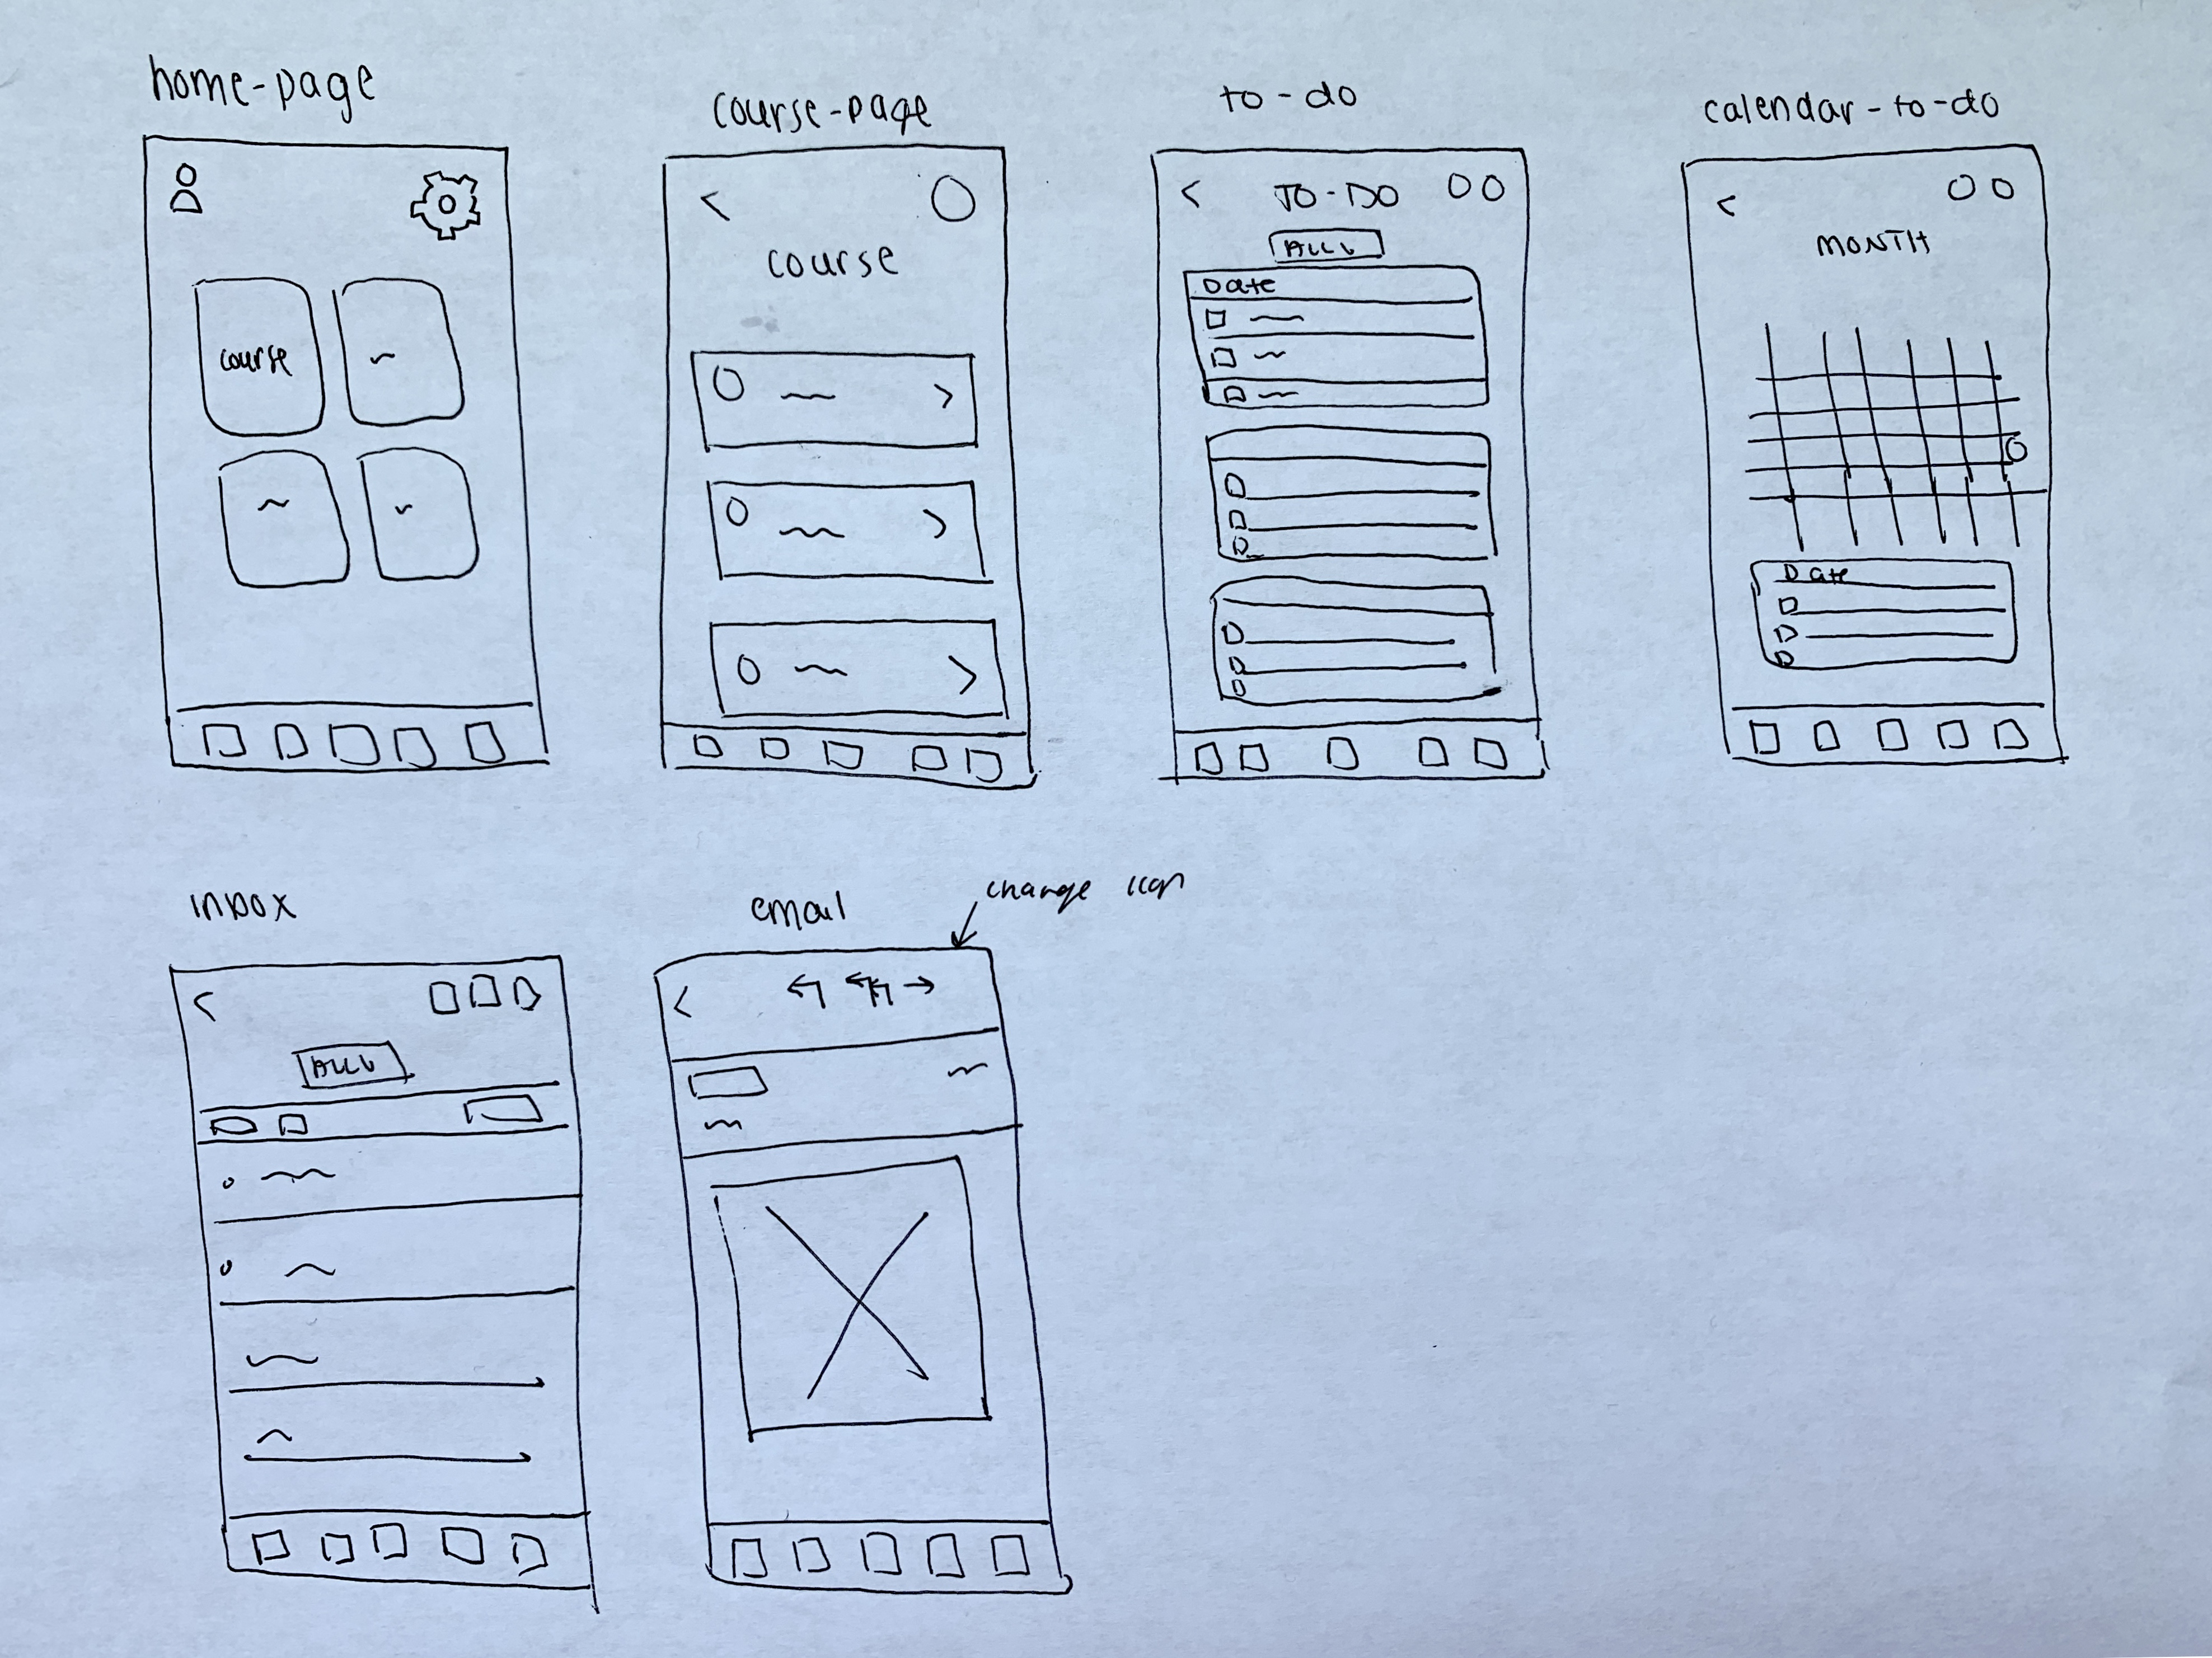 home-page
course
course-page
course
to-do
TO-DO
ALL
Date
calendar-to-do
MONTH
Date
inbox
ALL
email
change icon